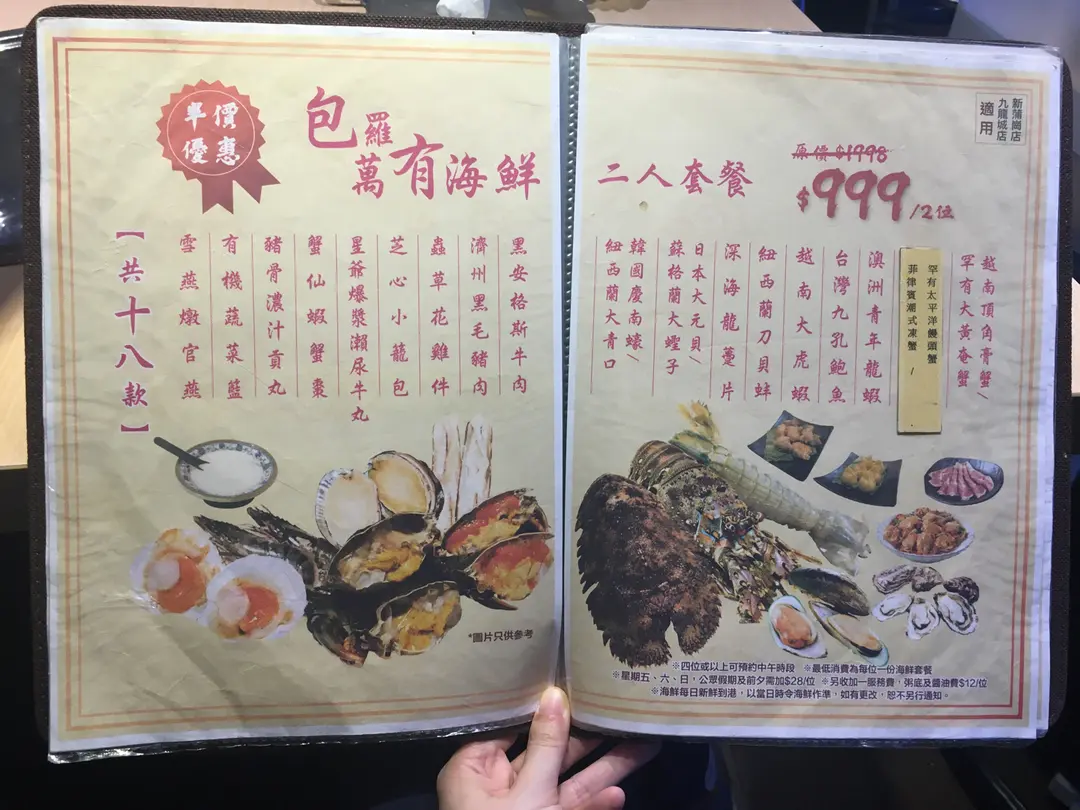 半價
優惠
包羅
萬有海鮮
二人套餐
原價$1998
$999/2位
新蒲崗店
九龍城店
適用
越南頂角膏蟹/
罕有大黃奄蟹
罕有太平洋饅頭蟹
菲律賓潮式凍蟹/
澳洲青年龍蝦
台灣九孔鮑魚
越南大虎蝦
紐西蘭刀貝蚌
深海龍躉片
日本大元貝/
蘇格蘭大蟶子
韓國慶南蠔/
紐西蘭大青口
黑安格斯牛肉
濟州黑毛豬肉
蟲草花雞件
芝心小籠包
星爺爆漿瀨尿牛丸
蟹仙蝦蟹棗
豬骨濃汁貢丸
有機蔬菜籃
雪燕燉官燕
【共十八款】
*圖片只供參考
※四位或以上可預約中午時段 ※最低消費為每位一份海鮮套餐
※星期五、六、日,公眾假期及前夕需加$28/位 ※另收加一服務費,粥底及醬油費$12/位
※海鮮每日新鮮到港,以當日時令海鮮作準,如有更改,恕不另行通知。